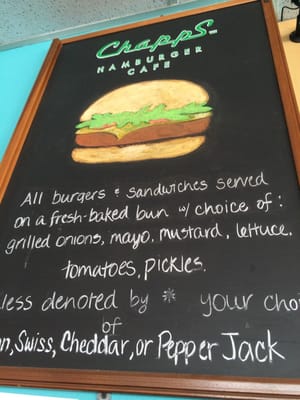 Chapps
HAMBURGER
CAFE
All burgers & sandwiches served
on a fresh-baked bun w/ choice of:
grilled onions, mayo, mustard, lettuce.
tomatoes, pickles.
less denoted by * your choi
of
n, Swiss, Cheddar, or Pepper Jack